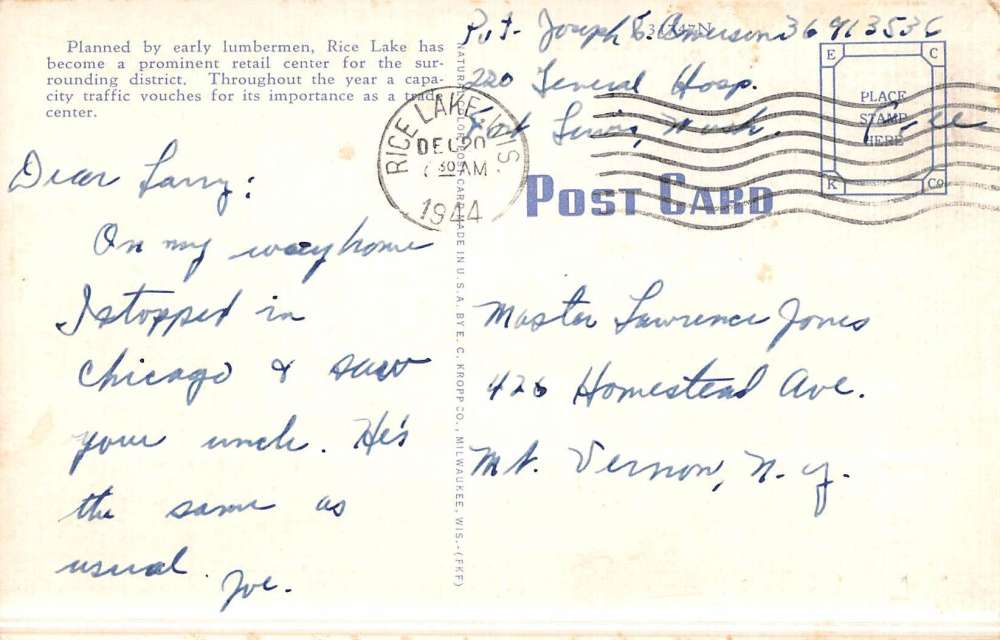 Planned by early lumbermen, Rice Lake has
become a prominent retail center for the sur-
rounding district. Throughout the year a capa-
city traffic vouches for its importance as a trade
center.
Dear Larry:
On my way home
I stopped in
Chicago & saw
your uncle. He's
the same as
usual.
Joe.
RICE LAKE, WIS.
DEC 20
30 AM
1944
NATURAL COLOR POST CARD MADE IN U.S.A. BY E. C. KROPP CO., MILWAUKEE, WIS.-(FKF)
Pvt. Joseph 36913536
220 General Hosp.
Fort Lewis, Wash. Free
E C
PLACE
STAMP
HERE
K Co
POST CARD
Master Lawrence Jones
426 Homestead Ave.
Mt. Vernon, N.Y.